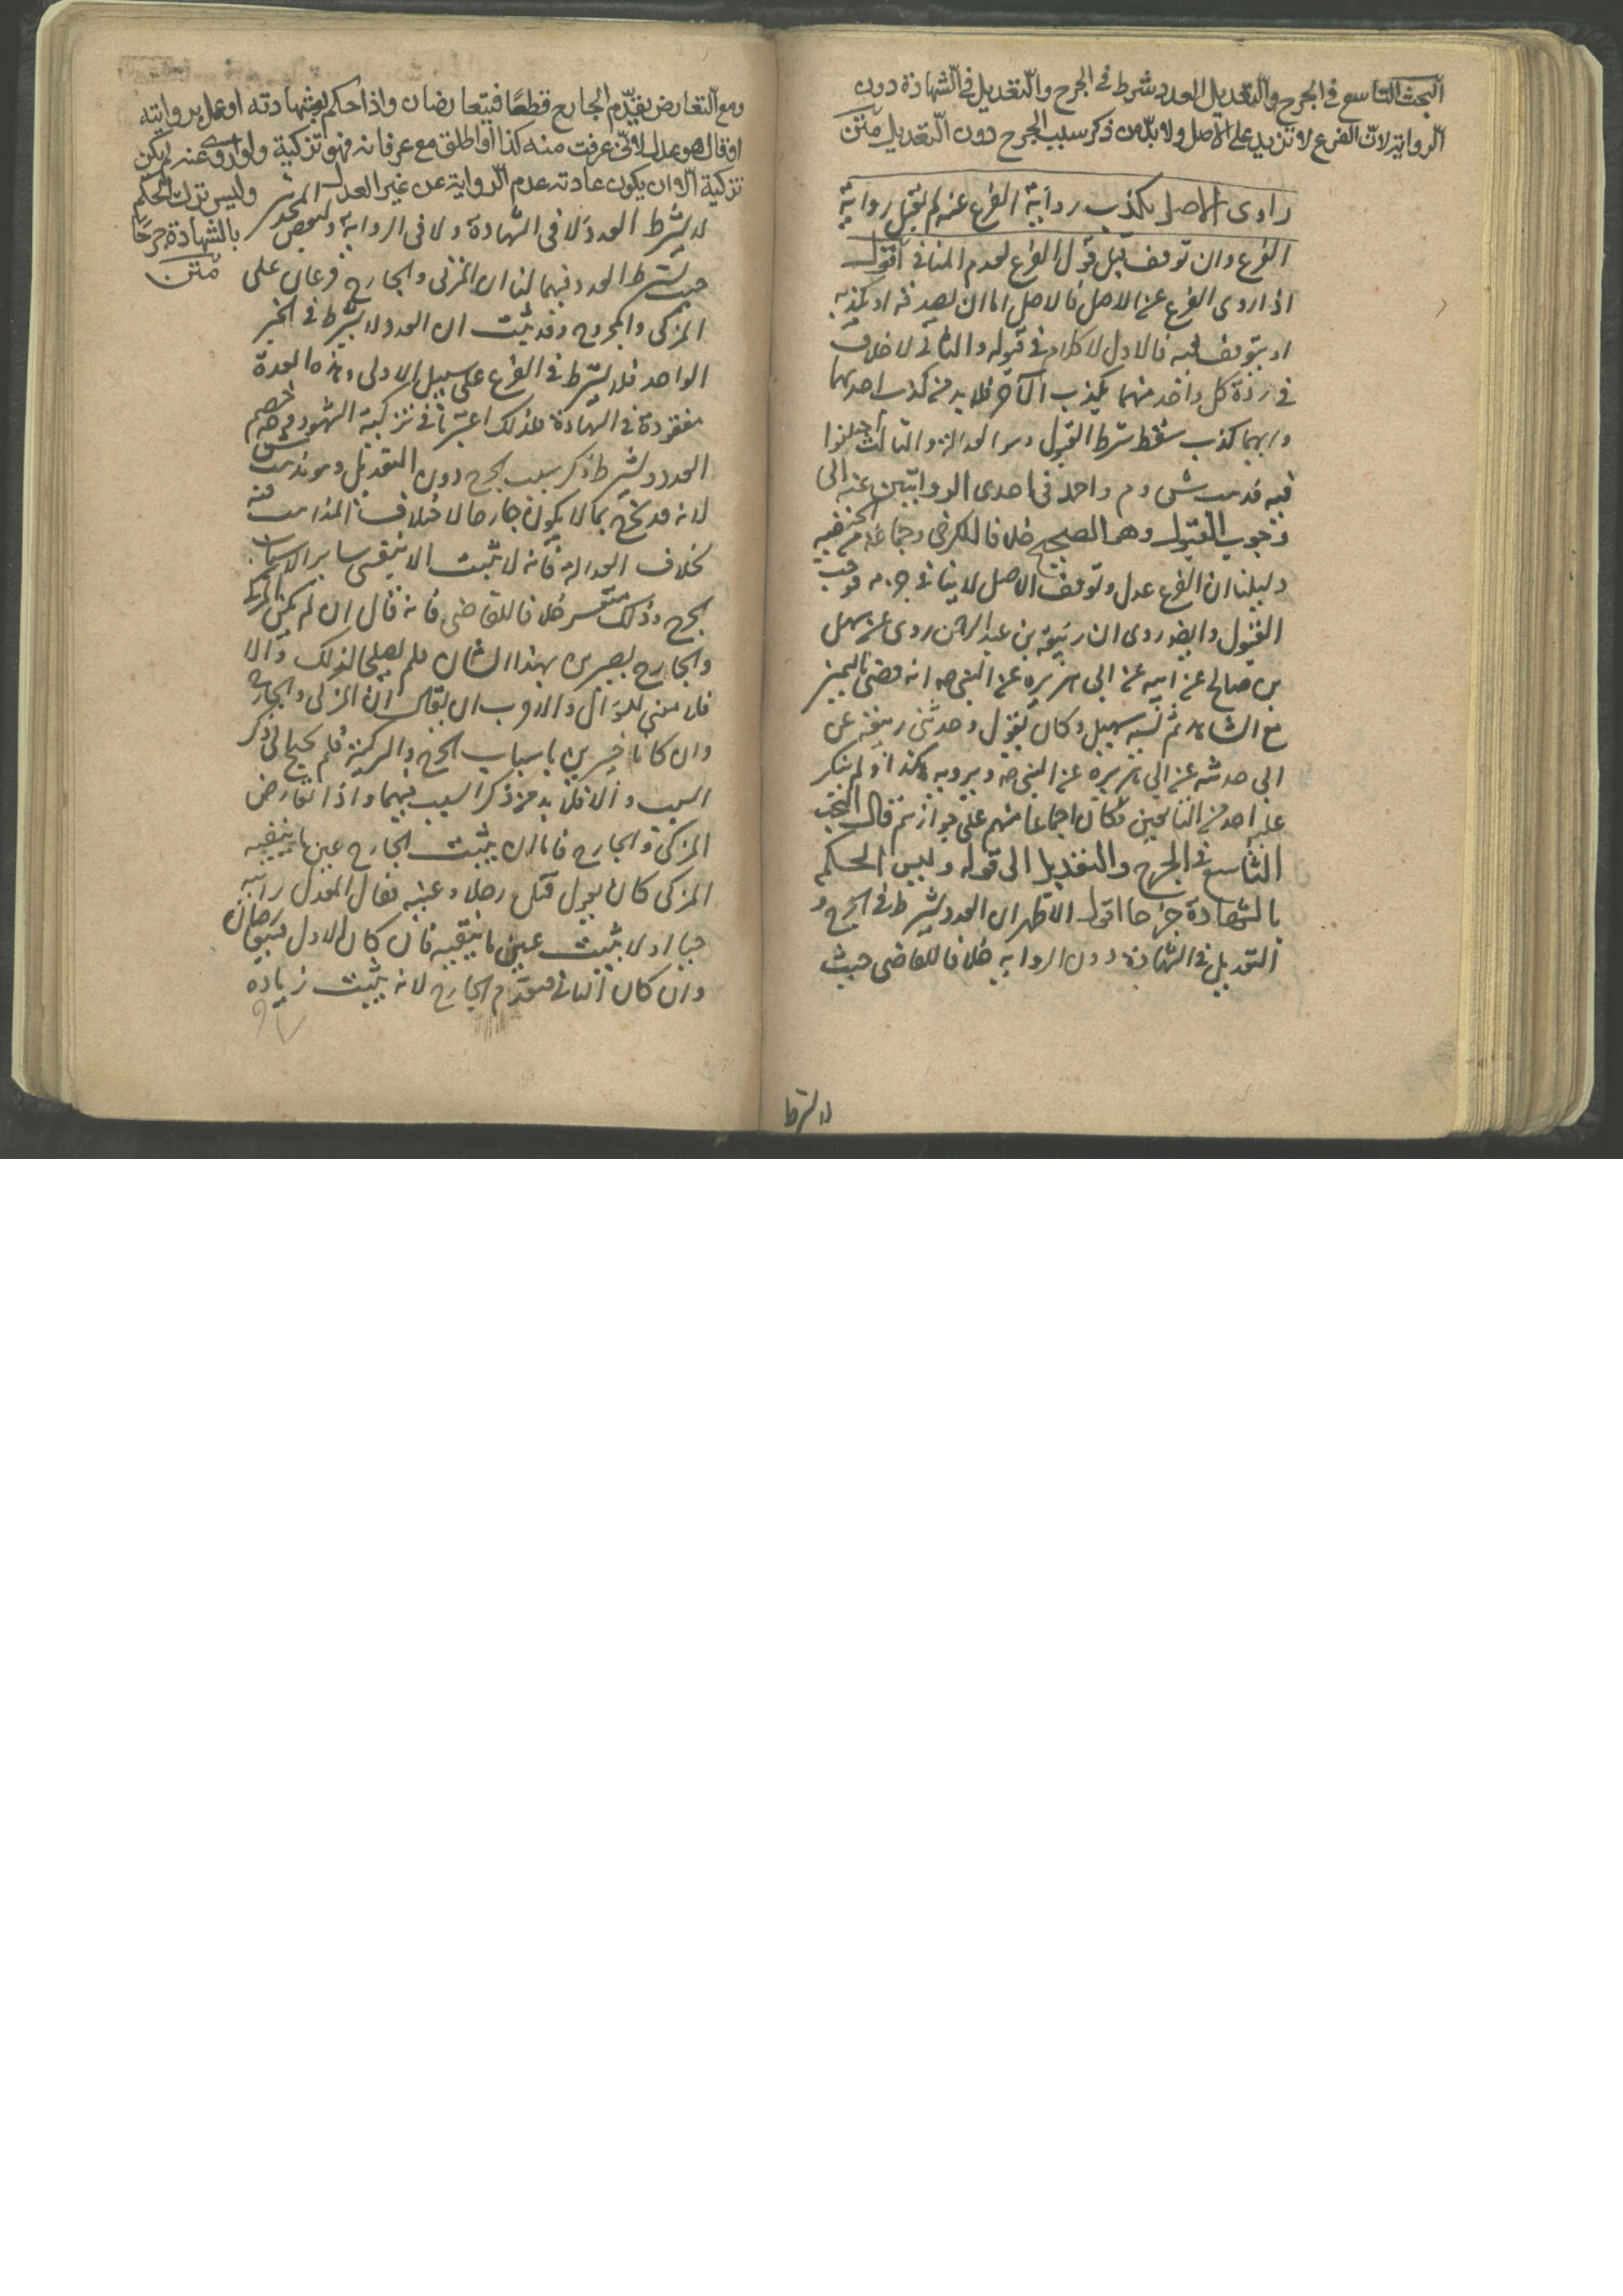 البحث التاسع في الجرح والتعديل العدد شرط في الجرح والتعديل في الشهادة دون
الرواية لان الفرع لا تزيد على الاصل ولا بد من ذكر سبب الجرح دون التعديل متن
راوى الاصل بكذب رواية الفرع عنه لم تقبل رواية
الفرع وان توقف قبل قول الفرع لعدم المنافى اقول
اذا روى الفرع عن الاصل فالاصل اما ان يصدقه او يكذبه
او يتوقف فيه فالاول لا كلام في قبوله والثانى لا خلاف
في ردة كل واحد منهما يكذب الآخر فلا بد من كذب احدهما
وايهما كذب سقط شرط القبول وهو العدالة والثالث اختلفوا
فيه فذهب ش و م واحمد في احدى الروايتين عنه الى
وجوب القبول وهو الصحيح خلافا للكرخى وجماعة من الحنفيه
دليلنا ان الفرع عدل وتوقف الاصل لا ينافى جزمه فوجب
القبول وايضا روى ان ربيعة بن عبد الرحمن روى عن سهل
بن صالح عن ابيه عن ابى هريره عن النبى صه انه قضى باليمين
مع الشاهد ثم نسيه سهيل وكان يقول وحدثنى ربيعة عن
ابى حدثته عن ابى هريره عن النبى صه ويرويه هكذا ولم ينكر
عليه احد من التابعين فكان اجماعا منهم على جوازه ثم قال البحث
التاسع في الجرح والتعديل الى قوله وليس الحكم
بالشهادة جرحا اقول الاظهر ان العدد يشترط في الجرح و
التعديل في الشهادة دون الروايه خلافا للقاضى حيث
لا يشترط
ومع التعارض يقدم الجارح قطعا فيتعارضان واذا حكم بشهادته او عمل بروايته
او قال هو عدل لانى عرفت منه كذا او اطلق مع عرفانه فهو تزكية ولو روى عنه لم يكن
تزكية الا ان يكون عادته عدم الرواية عن غير العدل وليس ترك الحكم
بالشهادة جرحا
متن
لا يشترط العدد لا في الشهادة ولا في الرواية ولبعض المحدثين
حيث يشترط العدد فيهما لنا ان المزكى والجارح فرعان على
المزكى والمجروح وقد ثبت ان العدد لا يشترط في الخبر
الواحد فلا يشترط في الفرع على سبيل الاولى وهذه العدة
مفقودة في الشهادة فلذلك اعتبرنا في تزكية الشهود وجرحهم
العدد ويشترط ذكر سبب الجرح دون التعديل وهو مذهب ش
لانه قد يجرح بما لا يكون جارحا لاختلاف المذاهب فيه
بخلاف العدالة فانه لا تثبت الا بنفى سائر الاسباب
الجرح وذلك متعسر خلافا للقاضى فانه قال ان لم يكن المزكى
والجارح بصيرين بهذا الشان فلم يصلحا لذلك والا
فلا معنى للسؤال والاقرب ان يقال ان المزكى والجارح
وان كانا خبيرين باسباب الجرح والتزكية فلم يحتج الى ذكر
السبب والا فلا بد من ذكر السبب فيهما واذا تعارض
المزكى والجارح فاما ان يثبت الجارح عين ما ينفيه
المزكى كان يقول قتل رجلا وعينه فقال المعدل رايته
حيا او لا يثبت عين ما ينفيه فان كان الاول فيتعارضان
وان كان الثانى فيقدم الجارح لانه يثبت زيادة